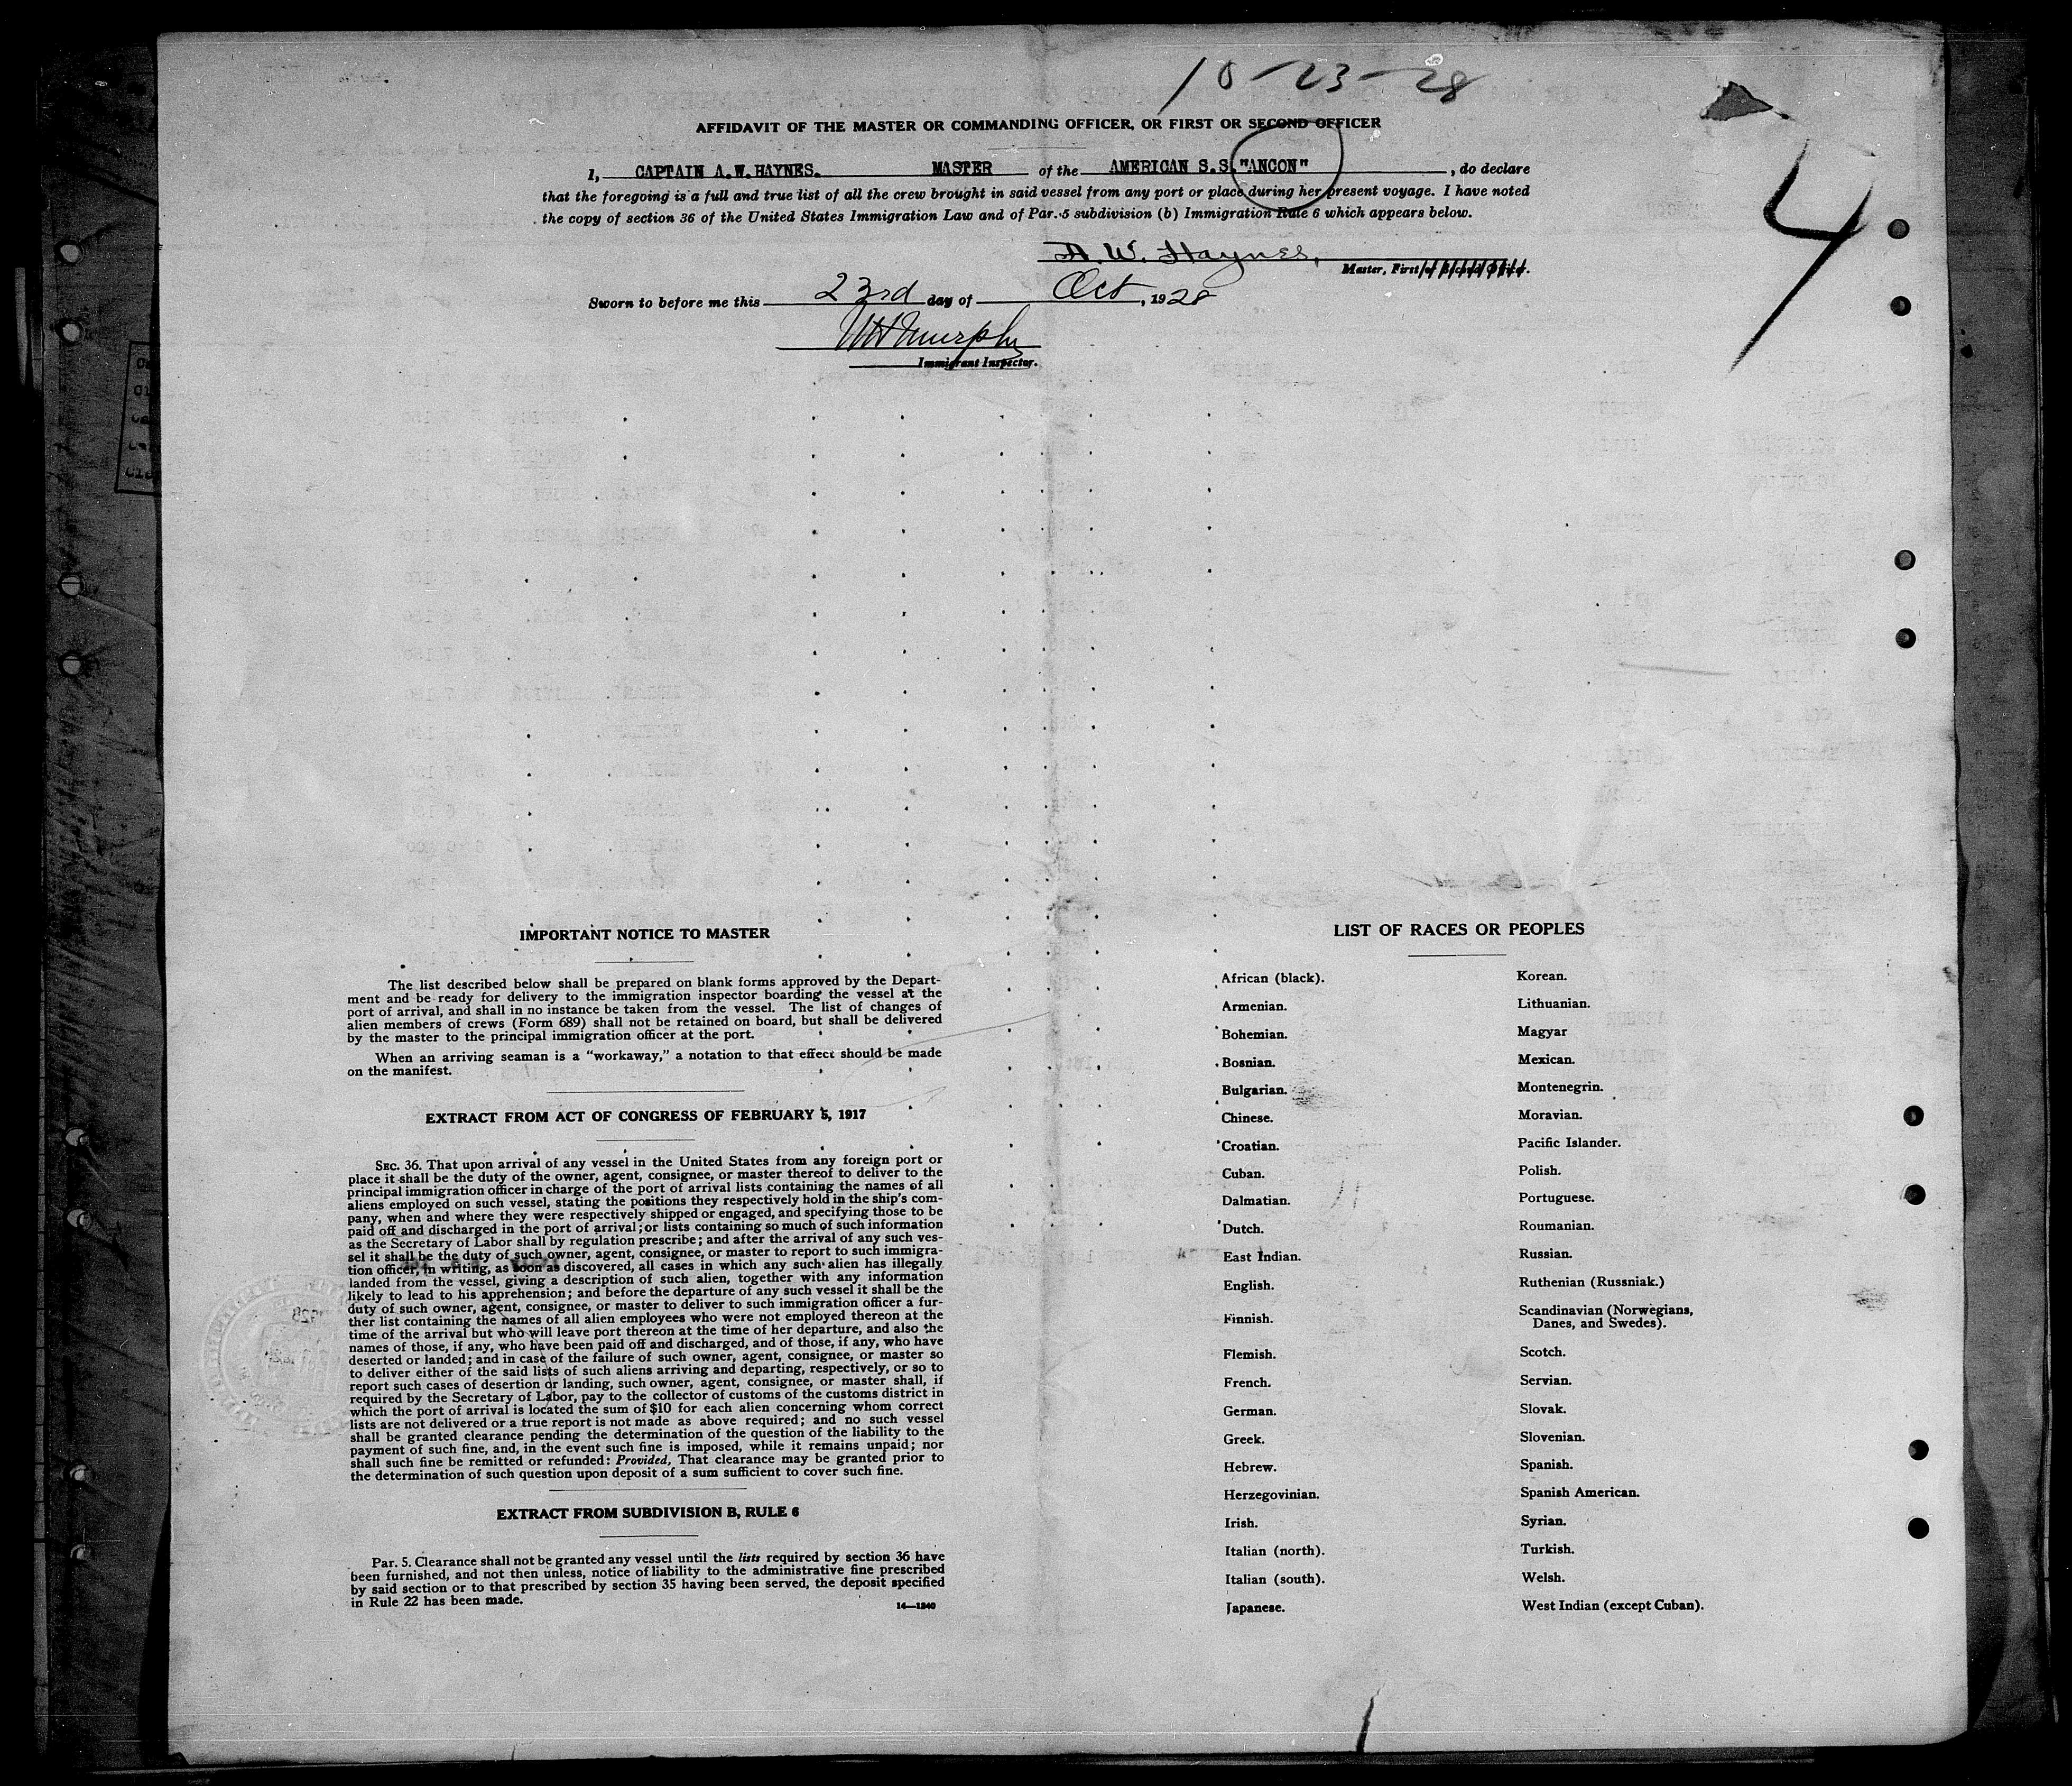 10-23-28
AFFIDAVIT OF THE MASTER OR COMMANDING OFFICER, OR FIRST OR SECOND OFFICER
I, CAPTAIN A.W.HAYNES. MASTER of the AMERICAN S.S."ANCON", do declare
that the foregoing is a full and true list of all the crew brought in said vessel from any port or place during her present voyage. I have noted
the copy of section 36 of the United States Immigration Law and of Par. 5 subdivision (b) Immigration Rule 6 which appears below.
4
A. W. Haynes,
Master, First or Second Officer.
Sworn to before me this 23rd day of Oct, 1928
Murphy
Immigrant Inspector.
IMPORTANT NOTICE TO MASTER
The list described below shall be prepared on blank forms approved by the Depart-
ment and be ready for delivery to the immigration inspector boarding the vessel at the
port of arrival, and shall in no instance be taken from the vessel. The list of changes of
alien members of crews (Form 689) shall not be retained on board, but shall be delivered
by the master to the principal immigration officer at the port.
When an arriving seaman is a "workaway," a notation to that effect should be made
on the manifest.
EXTRACT FROM ACT OF CONGRESS OF FEBRUARY 5, 1917
SEC. 36. That upon arrival of any vessel in the United States from any foreign port or
place it shall be the duty of the owner, agent, consignee, or master thereof to deliver to the
principal immigration officer in charge of the port of arrival lists containing the names of all
aliens employed on such vessel, stating the positions they respectively hold in the ship's com-
pany, when and where they were respectively shipped or engaged, and specifying those to be
paid off and discharged in the port of arrival; or lists containing so much of such information
as the Secretary of Labor shall by regulation prescribe; and after the arrival of any such ves-
sel it shall be the duty of such owner, agent, consignee, or master to report to such immigra-
tion officer, in writing, as soon as discovered, all cases in which any such alien has illegally
landed from the vessel, giving a description of such alien, together with any information
likely to lead to his apprehension; and before the departure of any such vessel it shall be the
duty of such owner, agent, consignee, or master to deliver to such immigration officer a fur-
ther list containing the names of all alien employees who were not employed thereon at the
time of the arrival but who will leave port thereon at the time of her departure, and also the
names of those, if any, who have been paid off and discharged, and of those, if any, who have
deserted or landed; and in case of the failure of such owner, agent, consignee, or master so
to deliver either of the said lists of such aliens arriving and departing, respectively, or so to
report such cases of desertion or landing, such owner, agent, consignee, or master shall, if
required by the Secretary of Labor, pay to the collector of customs of the customs district in
which the port of arrival is located the sum of $10 for each alien concerning whom correct
lists are not delivered or a true report is not made as above required; and no such vessel
shall be granted clearance pending the determination of the question of the liability to the
payment of such fine, and, in the event such fine is imposed, while it remains unpaid; nor
shall such fine be remitted or refunded: Provided, That clearance may be granted prior to
the determination of such question upon deposit of a sum sufficient to cover such fine.
EXTRACT FROM SUBDIVISION B, RULE 6
Par. 5. Clearance shall not be granted any vessel until the lists required by section 36 have
been furnished, and not then unless, notice of liability to the administrative fine prescribed
by said section or to that prescribed by section 35 having been served, the deposit specified
in Rule 22 has been made.
14—1240
LIST OF RACES OR PEOPLES
African (black).
Armenian.
Bohemian.
Bosnian.
Bulgarian.
Chinese.
Croatian.
Cuban.
Dalmatian.
Dutch.
East Indian.
English.
Finnish.
Flemish.
French.
German.
Greek.
Hebrew.
Herzegovinian.
Irish.
Italian (north).
Italian (south).
Japanese.
Korean.
Lithuanian.
Magyar
Mexican.
Montenegrin.
Moravian.
Pacific Islander.
Polish.
Portuguese.
Roumanian.
Russian.
Ruthenian (Russniak.)
Scandinavian (Norwegians,
Danes, and Swedes).
Scotch.
Servian.
Slovak.
Slovenian.
Spanish.
Spanish American.
Syrian.
Turkish.
Welsh.
West Indian (except Cuban).